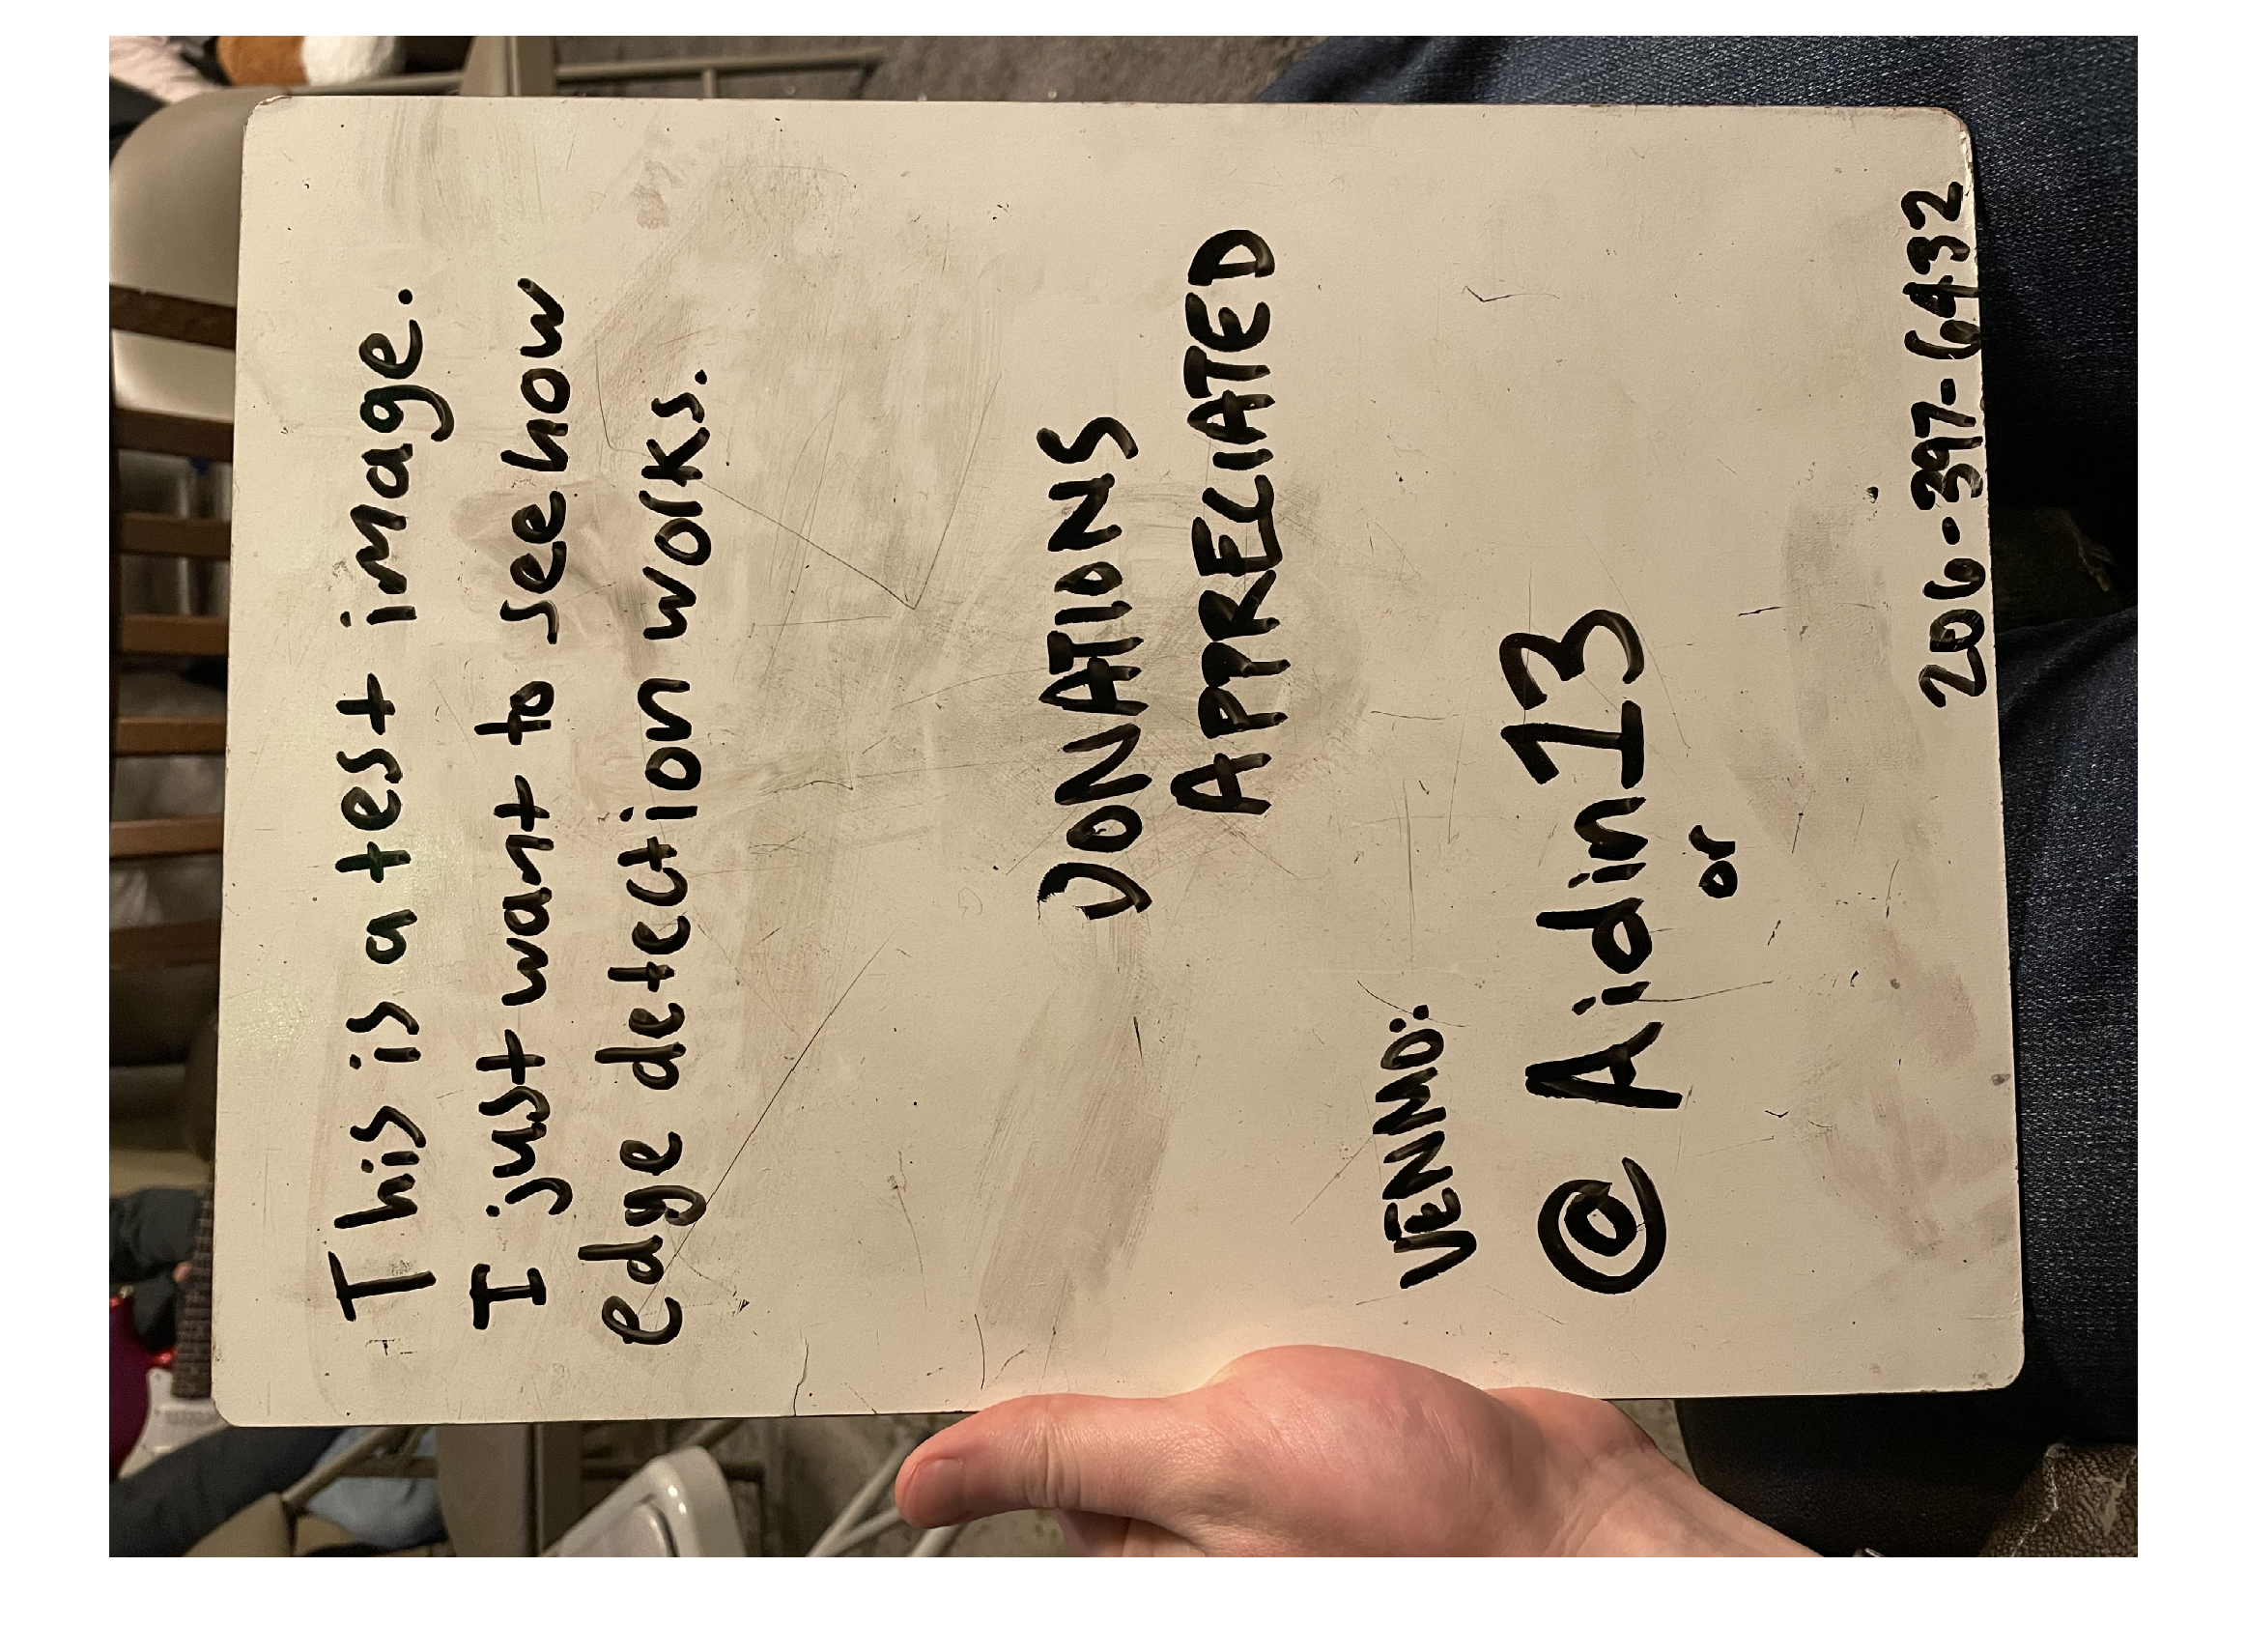 This is a test image.
I just want to see how
edge detection works.
DONATIONS
APPRECIATED
VENMO:
@Aidin13
or
206-397-6432